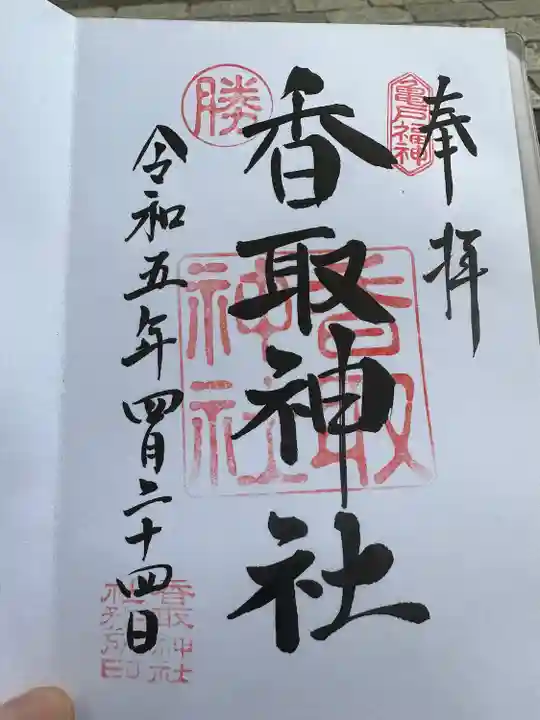 奉拝
亀戸福神
香取神社
香取神社
勝
令和五年四月二十四日
香取神社
社務所印